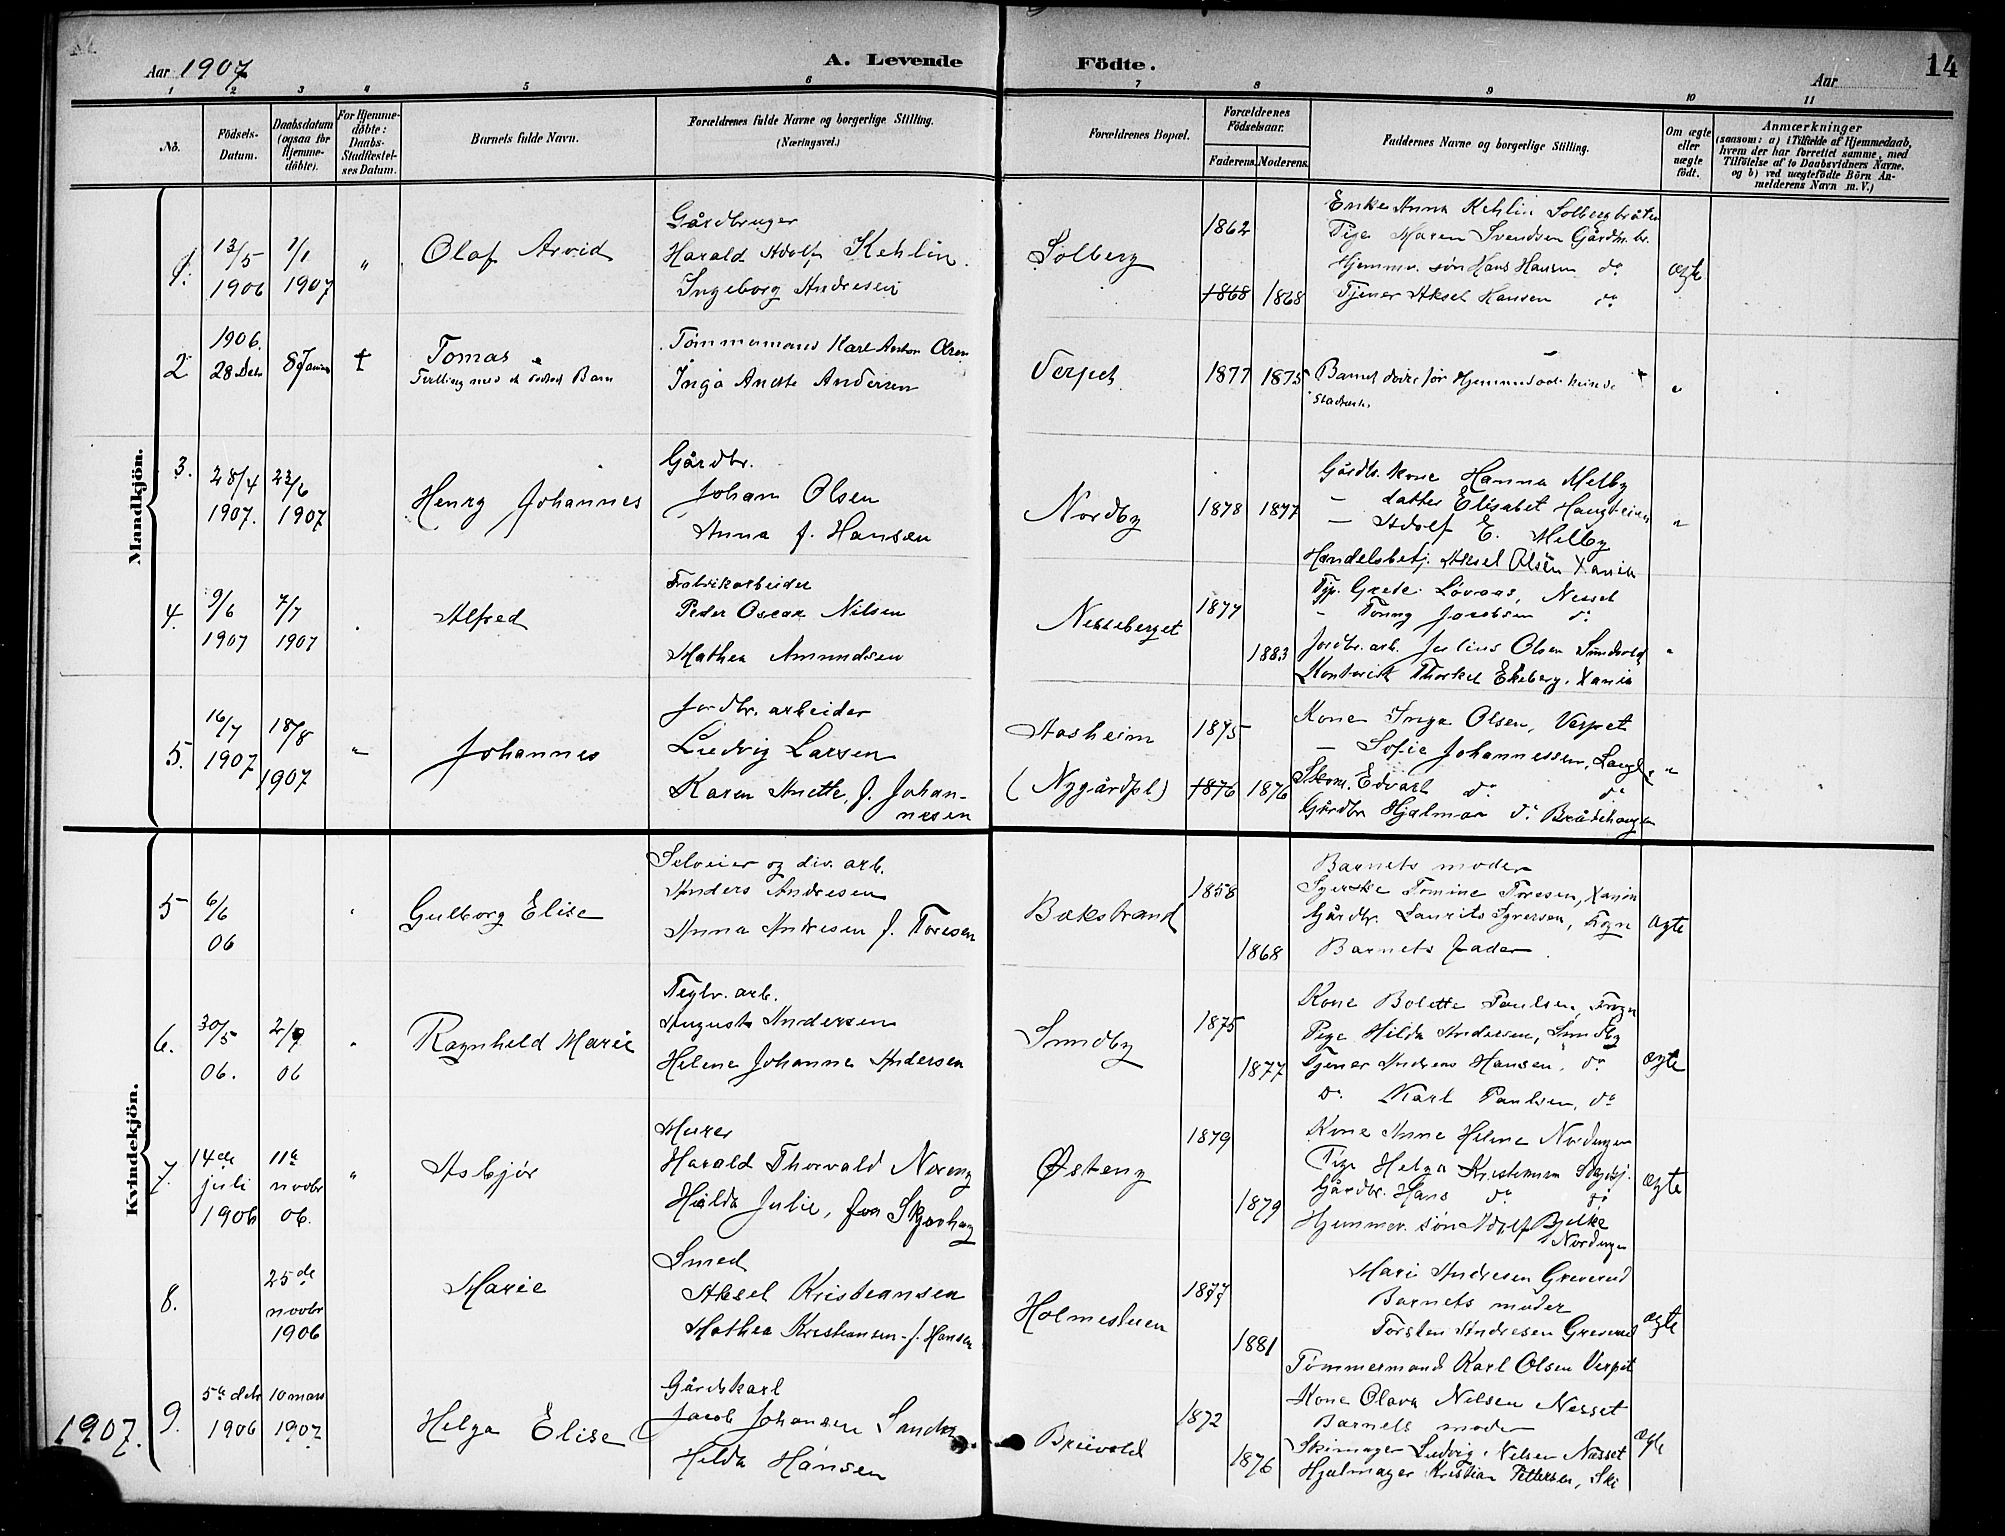 Aar 1907
A. Levende
Födte.
Aar
14
1 2 3 4 5 6 7 8 9 10 11
No.
Födsels-
Datum.
Daabsdatum
(ogsaa for
Hjemme-
döbte).
For Hjemme-
döbte:
Daabs-
Stadfæstel-
ses Datum.
Barnets fulde Navn.
Forældrenes fulde Navne og borgerlige Stilling.
(Næringsvei.)
Forældrenes Bopæl.
Forældrenes
Födselsaar.
Faderens.
Moderens.
Faddernes Navne og borgerlige Stilling.
Om ægte
eller
uægte
födt.
Anmærkninger
(saasom: a) i Tilfælde af Hjemmedaab,
hvem der har forrettet samme, med
Tilföielse af to Daabsvidners Navne,
og b) ved uægtefödte Börn An-
melderens Navn m. V.)
Mandkjön.
1.
13/5
1906
1/1
1907
"
Olaf Arvid
Gårdbruger
Harald Adolf Kehlin
Ingeborg Andresen
Solberg
1862
1868 1868
Enke Anna Kehlin Solbergbråten
Pige Maren Svendsen Gårdbr.
Hjemmv. søn Hans Hansen do
Tjener Aksel Hansen do
ægte
2
1906.
28 Deb
8 Januar
†
Tomas
Tvilling med et dødfødt Barn
Tømmermand Karl Anton Olsen
Inga Andersen
Verpet
1877 1875
Barnet døde før
"
3.
28/4
1907.
23/6
1907
Henry Johannes
Gårdbr.
Johan Olsen
Anna f. Hansen
Nordby
1878 1877
Gårdb. kone Hanna Melby
— datter Elisabet Haugteien
— Adolf E. Melby
Handelsbetj. Aksel Olsen Xania
"
4.
9/6
1907
7/7
1907
Alfred
Fabrikarbeider
Peder Oscar Nilsen
Mathea Amundsen
Nesseberget
1877
1883
Pige Grete Lovaas, Nesset
— Jacobsen do
Jordbr. arb. Julius Olsen
Kontorist Thorkel Ekeberg, Xania
"
5.
16/7
1907
18/8
1907
"
Johannes
Jordbr. arbeider
Ludvig Larsen
Karen Anette, f. Johan-
nesen
Aasheim
(Nygårdpl)
1875
1876 1876
Kone Inga Olsen, Verpet
— Sofie Johannessen,
Skom. Edvart do do
Gårdbr Hjalmar do Bråtehaugen
"
Kvindekjön.
5
6/6
06
Gulborg Elise
Selveier og div. arb.
Anders Andresen
Anna Andresen f. Toresen
Bakstrand
1858
1868
Barnets moder
Syerske Tomine Toresen, Xania
Gårdbr. Laurits Syversen,
Barnets fader
ægte
6.
30/5
06.
2/9
06
Ragnhild Marie
Teglv. arb.
August Andersen
Helene Johanne Andersen
Sundby
1875
1877
Kone Bolette Paulsen, Frogn
Pige Hilda Andresen, Sundby
Tjener Andreas Hansen, do
do Karl Paulsen, do
ægte
7.
14de
juli
1906
11te
novbr
06.
"
Asbjør
Murer
Harald Thorvald Noreng
Hilda Julie, Skjørhaug
Østeng
1879
1879
Kone Anne Helene Nordengen
Pige Helga Kristensen
Gårdbr. Hans do do
Hjemmev. søn Adolf Bjelke
Nordengen
ægte
8.
25de
novbr
1906
Marie
Smed
Aksel Kristiansen
Mathea Kristiansen f. Hansen
Holmesteen
1877
1881
Mari Andresen Greverud
Barnets moder
Torsten Andresen Greverud
Tømmermand Karl Olsen Verpet
ægte
1907.
9.
5te debr
1906
10 mars
1907
Helga Elise
Gårdskarl
Jacob Johansen Sander
Hilda Hansen
Breivold
1872
1876
Kone Olava Nilsen Nesset
Barnets moder
Skimager Ludvig Nilsen Næsset
Hjulmager Kristian Pettersen, Ski
ægte